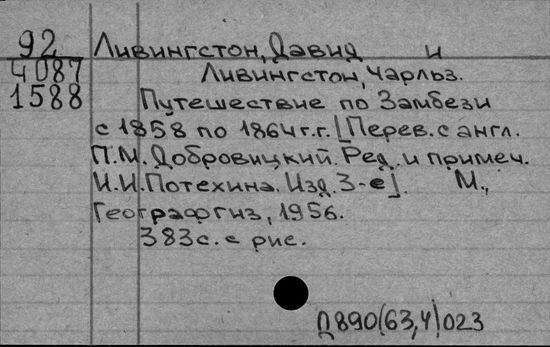 92 Ливингстон, Давид и
4087 Ливингстон, Чарльз.
1588 Путешествие по Замбези
с 1858 по 1864 г.г. [Перев. с англ.
П.М. Добровицкий. Ред. и примеч.
И.И. Потехина. Изд. 3-е]. М.,
Географгиз, 1956.
383 с. с рис.
П890(63,4)023